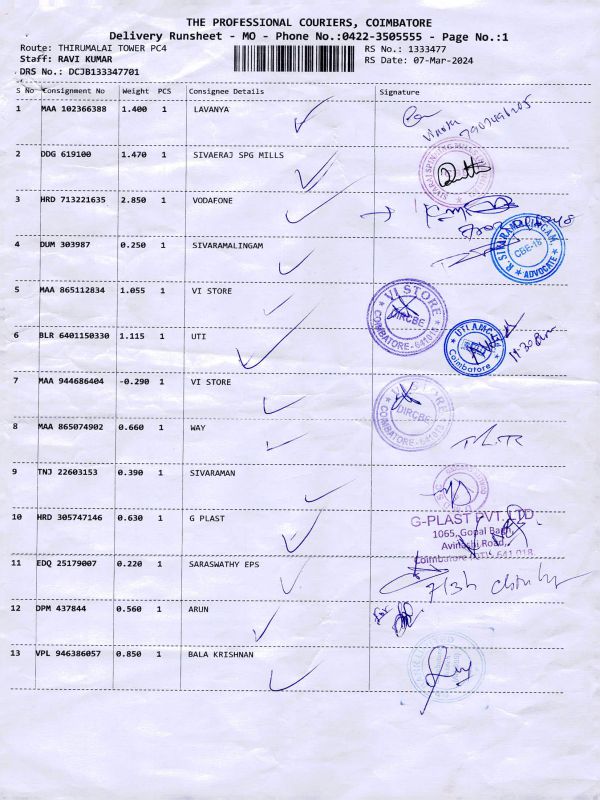 THE PROFESSIONAL COURIERS, COIMBATORE
Delivery Runsheet - MO - Phone No.:0422-3505555 - Page No.:1
Route: THIRUMALAI TOWER PC4 RS No.: 1333477
Staff: RAVI KUMAR RS Date: 07-Mar-2024
DRS No.: DCJB133347701
S No Consignment No Weight PCS Consignee Details Signature
1 MAA 102366388 1.400 1 LAVANYA
2 DDG 619100 1.470 1 SIVAERAJ SPG MILLS
3 HRD 713221635 2.850 1 VODAFONE
4 DUM 303987 0.250 1 SIVARAMALINGAM
R. SIVARAMALINGAM.
CBE-18
ADVOCATE
5 MAA 865112834 1.055 1 VI STORE
VI STORE
DIRCBE
COIMBATORE-641018
6 BLR 6401150330 1.115 1 UTI
UTI AMC
Coimbatore
11.30
7 MAA 944686404 -0.290 1 VI STORE
VI STORE
DIRCBE
COIMBATORE-641018
8 MAA 865074902 0.660 1 WAY
9 TNJ 22603153 0.390 1 SIVARAMAN
10 HRD 305747146 0.630 1 G PLAST
G-PLAST PVT. LTD
1065, Gopal Bagh,
Avinashi Road,
Coimbatore 641 018
11 EDQ 25179007 0.220 1 SARASWATHY EPS
12 DPM 437844 0.560 1 ARUN
for
13 VPL 946386057 0.850 1 BALA KRISHNAN